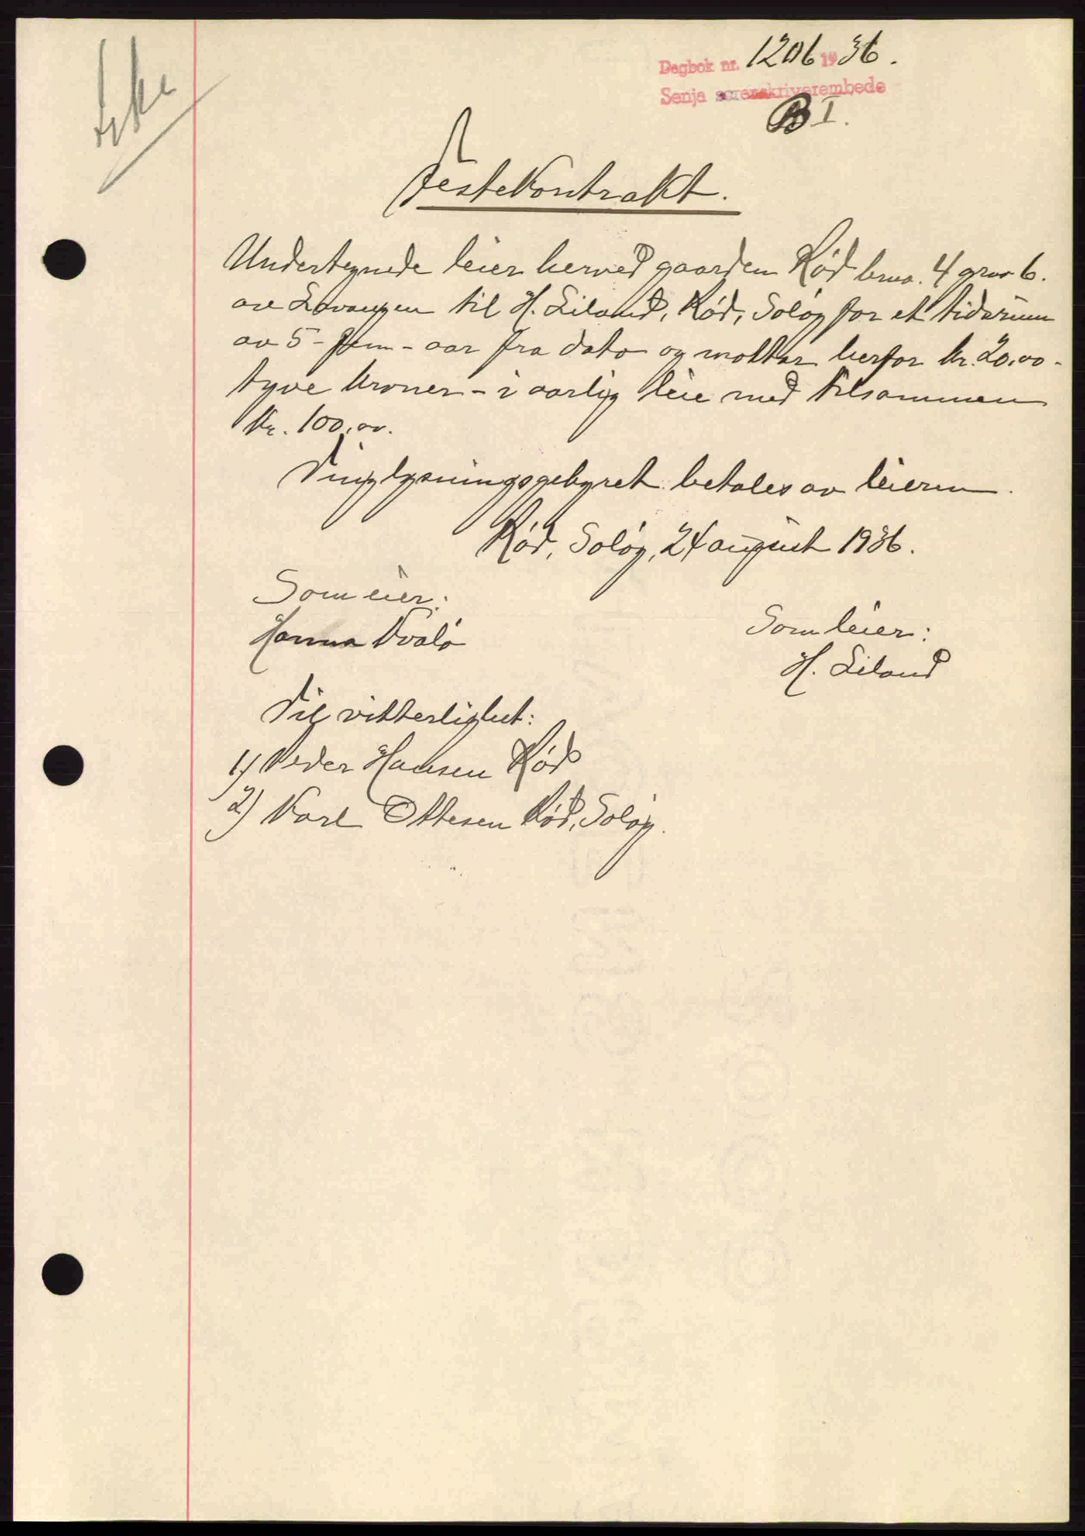 Dagbok nr. 1206 1936.
Senja sorenskriverembede
B I.
Festekontrakt.
Undertegnede leier herved gaarden Rød brno. 4 grno 6.
av Lavangen til H. Liland, Rød, Soløy for et tidsrum
av 5 - fem - aar fra dato og mottar herfor kr. 20.00 -
tyve kroner - i aarlig leie med tilsammen
Kr. 100,00.
Tinglysningsgebyret betales av leieren.
Rød, Soløy, 24 august 1936.
Som eier:
Hanna Kvalø
Som leier:
H. Liland
Til vitterlighet:
1) Peder Hansen Rød
2) Karl Ottesen Rød, Soløy.